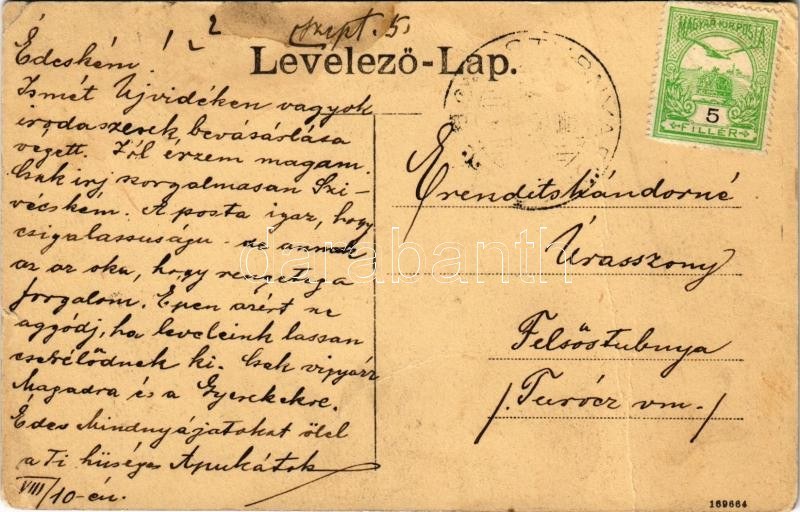 Szept. 5.
Levelező-Lap.
MAGYAR KIR. POSTA
5
FILLÉR
Édeském!
Ismét Ujvidéken vagyok
irodaszerek bevásárlása
végett. Jól érzem magam.
Csak irj szorgalmasan Szi-
vecském. A posta igaz, hogy
csigalassuságu - de annak
az az oka, hogy rengeteg a
forgalom. Épen azért ne
aggódj, ha leveleink lassan
cserélődnek ki. Csak vigyázz
Magadra és a Gyerekekre.
Édes Mindnyájatokat ölel
a Ti hüséges Apukátok
VIII/10-én.
Erenditskándorné
Úrasszony
Felsőstubnya
/.Turócz vm./
darabanth
169664